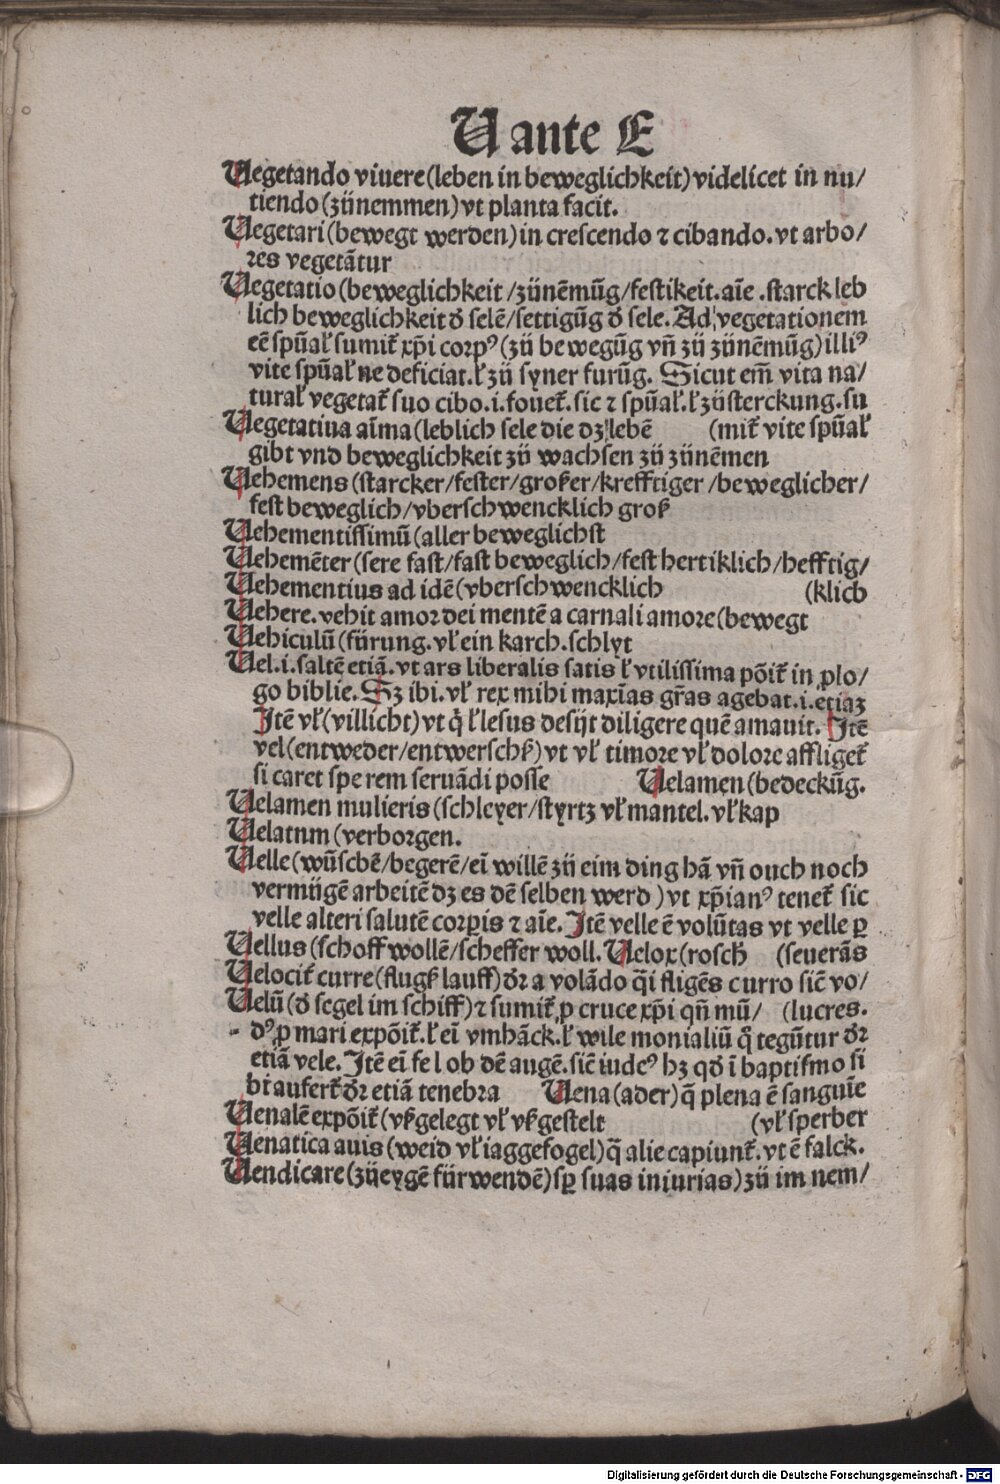 U ante E
Uegetando viuere (leben in beweglichkeit) videlicet in nu/
tiendo (zünemmen) vt planta facit.
Uegetari (bewegt werden) in crescendo ⁊ cibando. vt arbo/
res vegetātur
Uegetatio (beweglichkeit /zünēmūg/festikeit. aīe .starck leb
lich beweglichkeit d̄ selē/settigūg d̄ sele. Ad vegetationem
eē spūał sumit̄ xp̄i corpꝰ (zü bewegūg vñ zü zünēmūg) illiꝰ
vite spūał ne deficiat. ł zü syner furūg. Sicut em̄ vita na/
turał vegetat̄ suo cibo .i. fouet̄. sic ⁊ spūał. ł züsterckung. su
Uegetatiua aīma (leblich sele die dz lebē (mit̄ vite spūał
gibt vnd beweglichkeit zü wachsen zü zünēmen
Uehemens (starcker/fester/großer/krefftiger /beweglicher/
fest beweglich/vberschwencklich groß
Uehementissimū (aller beweglichst
Uehemēter (sere fast/fast beweglich/fest hertiklich/hefftig/
Uehementius ad idē (vberschwencklich (klich
Uehere. vehit amor dei mentē a carnali amore (bewegt
Uehiculū (fürung. vł ein karch. schlyt
Uel .i. saltē etiā. vt ars liberalis satis ł vtilissima pōit̄ in ꝓlo/
go biblie. Sz ibi. vł rex mihi maxīas gr̄as agebat .i. etiaz
Itē vł (villicht) vt q̄ ł lesus desijt diligere quē amauit. Itē
vel (entweder/entwerschß) vt vł timore vł dolore affliget̄
si caret spe rem seruādi posse Uelamen (bedeckūg.
Uelamen mulieris (schleyer/styrtz vł mantel. vł kap
Uelatum (verborgen.
Uelle (wūschē/begerē/eī willē zü eim ding hā vñ ouch noch
vermügē arbeitē dz es dē selben werd ) vt xp̄ianꝰ tenet̄ sic
velle alteri salutē corꝑis ⁊ aīe. Itē velle ē volūtas vt velle ꝑ
Uellus (schoff wollē/scheffer woll. Uelox (rosch (seuerās
Uelocit̄ curre (flugß lauff) dr̄ a volādo q̄i fligēs curro siē vo/
Uelū (d̄ segel im schiff) ⁊ sumit̄ ꝓ cruce xp̄i qñ mū/ (lucres.
dꝰ ꝓ mari expōit̄. ł eī vmhāck. ł wile monialiū q̄ tegūtur dr̄
etiā vele. Itē eī fel ob dē augē. siē iudeꝰ hz qd̄ ī baptismo si
bi aufert̄ dr̄ etiā tenebra Uena (ader) q̄ plena ē sanguīe
Uenalē expōit̄ (vß gelegt vł vß gestelt (vł sperber
Uenatica auis (weid vł iaggefogel) q̄ alie capiunt̄. vt ē falck.
Uendicare (züeygē fürwendē) sꝑ suas iniurias) zü im nem/
Digitalisierung gefördert durch die Deutsche Forschungsgemeinschaft - DFG